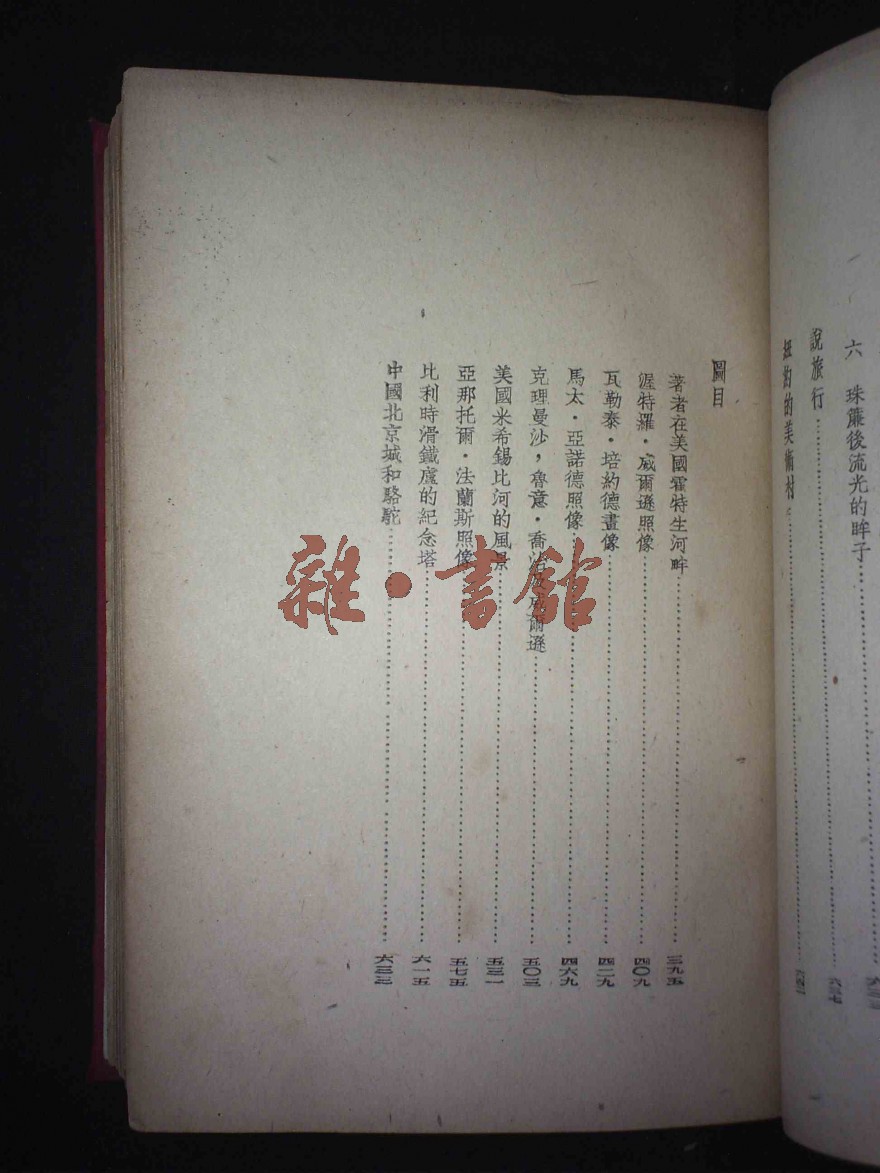 六 珠簾後流光的眸子
說旅行 六三七
紐約的美術村
圖目
著者在美國霍特生河畔 三九五
渥特羅·威爾遜照像 四〇九
瓦勒泰·培約德畫像 四二九
馬太·亞諾德照像 四六九
克理曼沙，魯意·喬治及威爾遜 五〇三
美國米希錫比河的風景 五三一
亞那托爾·法蘭斯照像 五七五
比利時滑鐵盧的紀念塔 六一五
中國北京城和駱駝 六三三
雜·書館